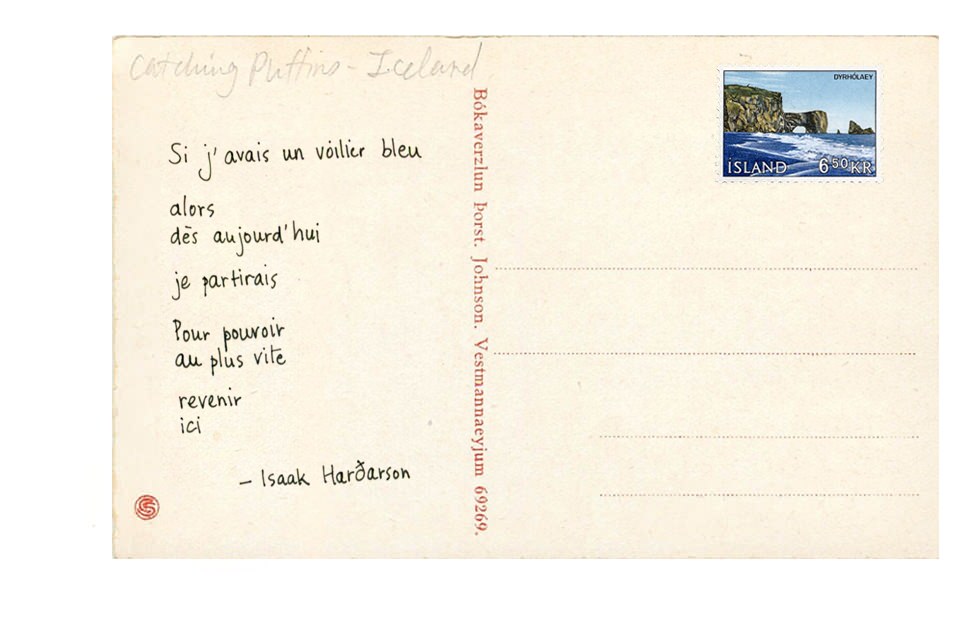 Catching Puffins - Iceland
Si j'avais un voilier bleu
alors
dès aujourd'hui
je partirais
Pour pouvoir
au plus vite
revenir
ici
– Isaak Harðarson
Bókaverzlun Þorst. Johnson. Vestmannaeyjum 69269.
DYRHÓLAEY
ÍSLAND 6⁵⁰ KR